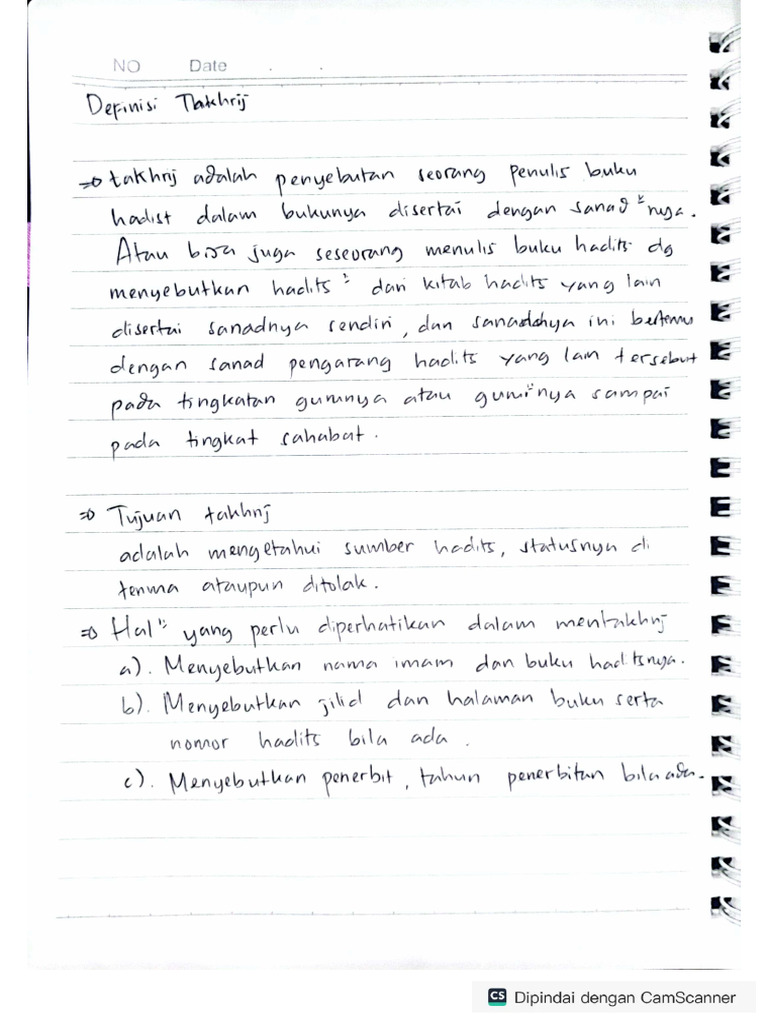 NO Date . .
Definisi Takhrij
⇒ takhrij adalah penyebutan seorang penulis buku
hadist dalam bukunya disertai dengan sanad²nya.
Atau bisa juga seseorang menulis buku hadits dg
menyebutkan hadits² dari kitab hadits yang lain
disertai sanadnya sendiri, dan sanadnya ini bertemu
dengan sanad pengarang hadits yang lain tersebut
pada tingkatan gurunya atau guru²nya sampai
pada tingkat sahabat.
⇒ Tujuan takhrij
adalah mengetahui sumber hadits, statusnya di
terima ataupun ditolak.
⇒ Hal² yang perlu diperhatikan dalam mentakhrij
a). Menyebutkan nama imam dan buku haditsnya.
b). Menyebutkan jilid dan halaman buku serta
nomor hadits bila ada.
c). Menyebutkan penerbit, tahun penerbitan bila ada.
CS Dipindai dengan CamScanner